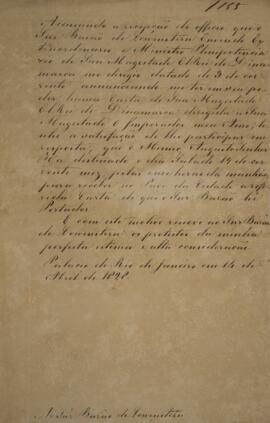 Accusando a recepção do officio que o
Snr Barão de Lowenstern Enviado Ex-
traordinario e Ministro Plenipotencia-
rio de Sua Magestade ElRei de Dina-
marca me dirigio datado de 3 do cor-
rente, annunciando-me ter em seu
poder huma Carta de Sua Magestade
ElRei de Dinamarca dirigida a Sua
Magestade O Imperador meu Amo, te-
nho a satisfação de lhe participar em
resposta, que o Mesmo Augusto Senhor
Ha destinado o dia Sabado do cor-
rente mez, pelas onze horas da manhãa,
para receber no Paço da Cidade a refe-
rida Carta de que o Snr Barão he
Portador.
E com este motivo renovo ao Snr Barão
de Lowenstern os protestos da minha
perfeita estima e alta consideração.
Palacio do Rio de Janeiro em de
Abril de 1828.
Snr Barão de Lowenstern